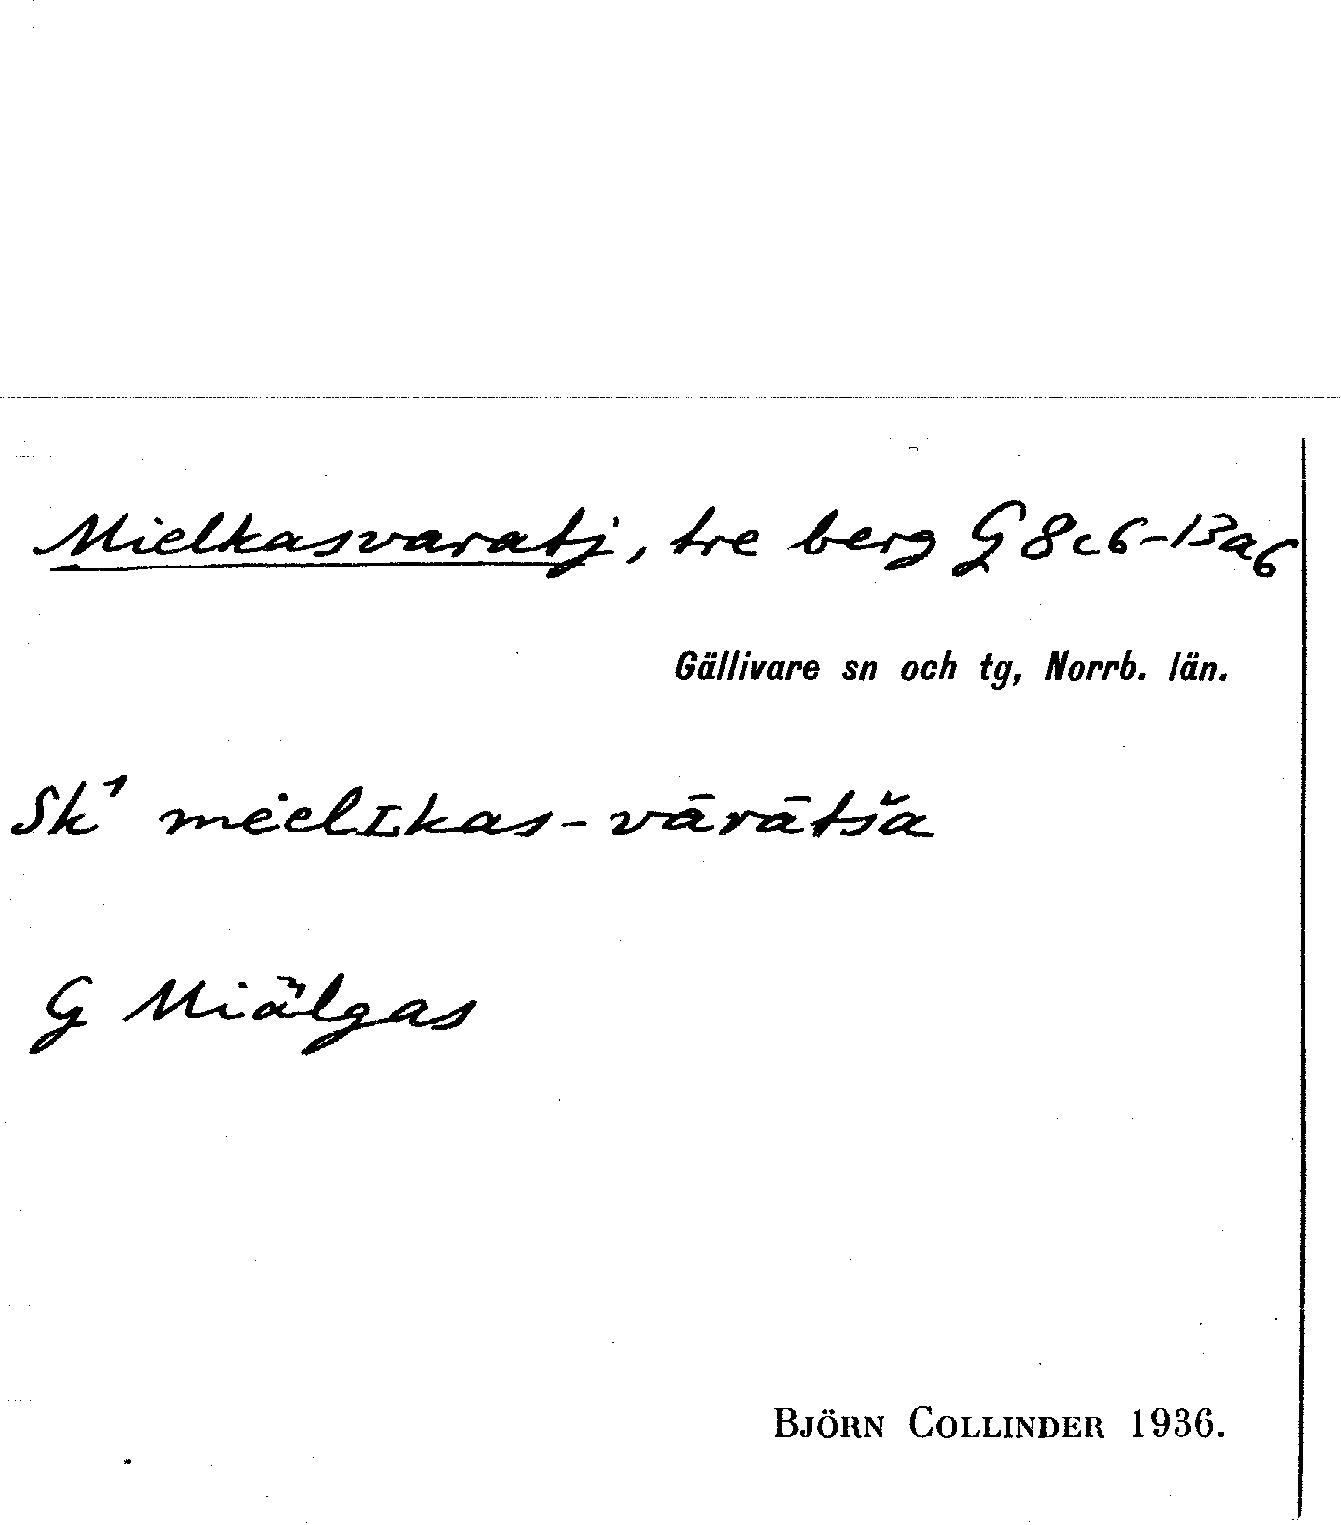 Mielkasvaratj, tre berg G 8c6-13a6
Gällivare sn och tg, Norrb. län.
Sk¹ mėelʟkas-vārātša
G Miälgas
BJÖRN COLLINDER 1936.